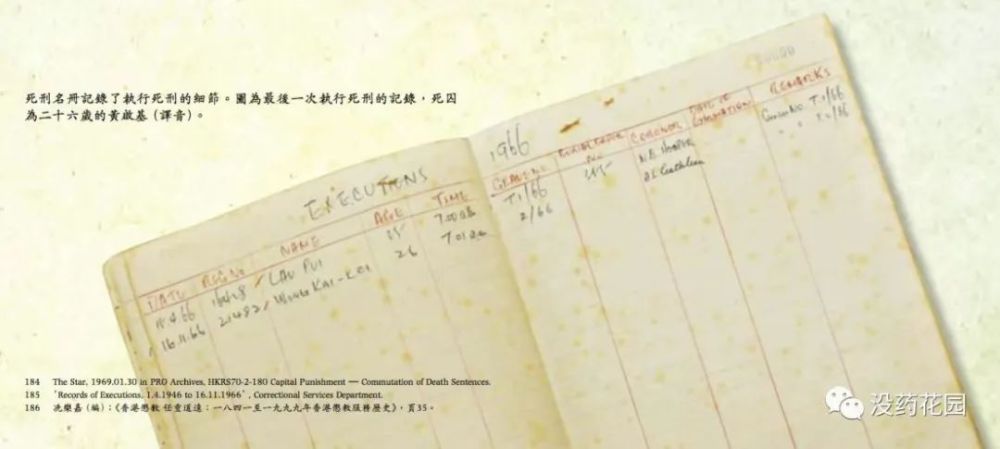 死刑名冊記錄了執行死刑的細節。圖為最後一次執行死刑的記錄，死囚
為二十六歲的黃啟基（譯音）。
EXECUTIONS
1966
DATE REG.NO NAME AGE TIME GRAVE NO CORONER REMARKS
LAU PUI T1/66 T.1/66
16.11.66 21482 WONG KAI-KEI 26 2/66
184 The Star, 1969.01.30 in PRO Archives, HKRS70-2-180 Capital Punishment — Commutation of Death Sentences.
185 'Records of Executions, 1.4.1946 to 16.11.1966', Correctional Services Department.
186 冼樂嘉（編）：《香港懲教 任重道遠：一八四一至一九九九年香港懲教服務歷史》，頁35。
没药花园